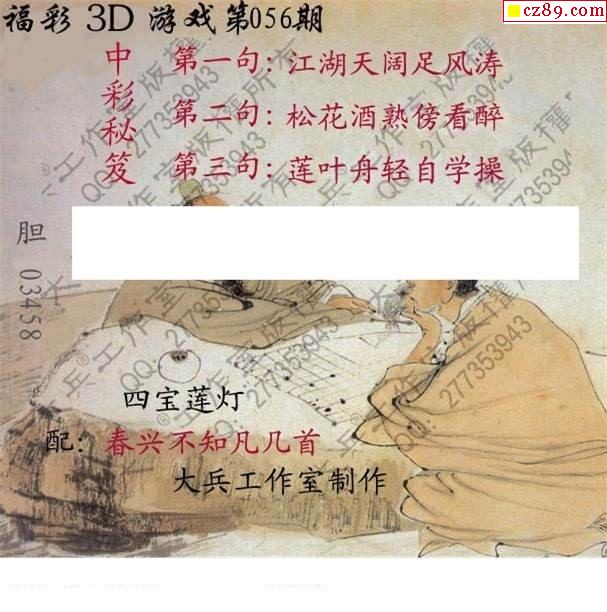 福彩 3D 游戏第056期
cz89.com
中彩秘笈
第一句：江湖天阔足风涛
第二句：松花酒熟傍看醉
第三句：莲叶舟轻自学操
胆 03458
四宝莲灯
配：春兴不知凡几首
大兵工作室制作
大兵®工作室版权所有
QQ：277353943